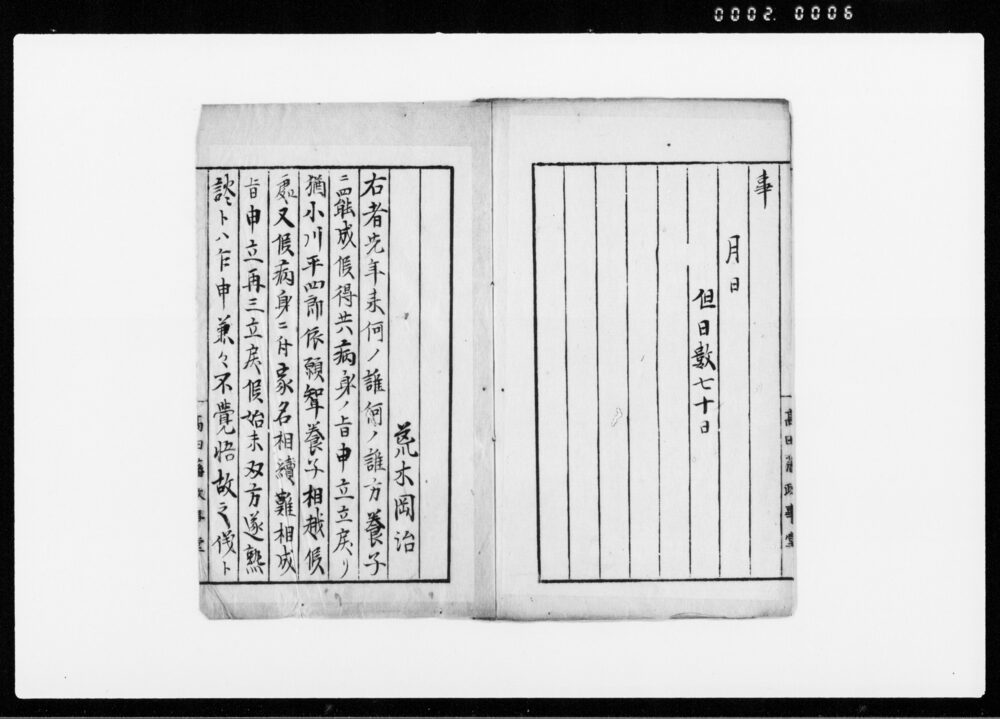 0002. 0006
事
月日
但日数七十日
高田藩政事堂
荒木岡治
右者先年来何ノ誰何ノ誰方養子
ニ罷成候得共病身ノ旨申立立戻リ
猶小川平四郎依願聟養子相越候
處又候病身ニ付家名相續難相成
旨申立再三立戻候始末双方遂熟
談トハ乍申兼々不覺悟故之儀ト
高田藩政事堂